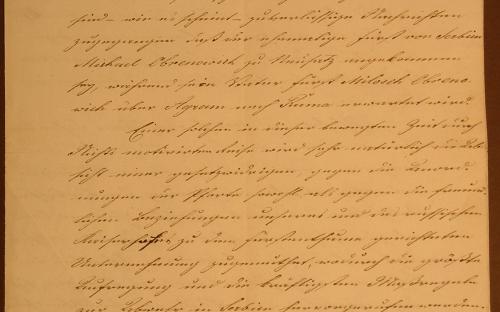 sind – wie es scheint – zuverlässige Nachrichten
zugegangen daß der ehemalige Fürst von Serbien
Michael Obrenowich zu Neusatz angekommen
sey, während sein Vater Fürst Milosch Obreno-
wich über Agram nach Ruma erwartet wird.
Einer solchen in dieser bewegten Zeit durch
Nichts motivirten Reise wird sehr natürlich die Ab-
sicht einer gesetzwidrigen, gegen die Anord-
nungen der Pforte sowohl als gegen die freund-
lichen Beziehungen unseres und des russischen
Kaiserhofes zu dem Fürstenthume gerichteten
Unternehmung zugemuthet, wodurch die größte
Aufregung und die kräftigsten Maßregeln
zur Abwehr in Serbien hervorgerufen werden.